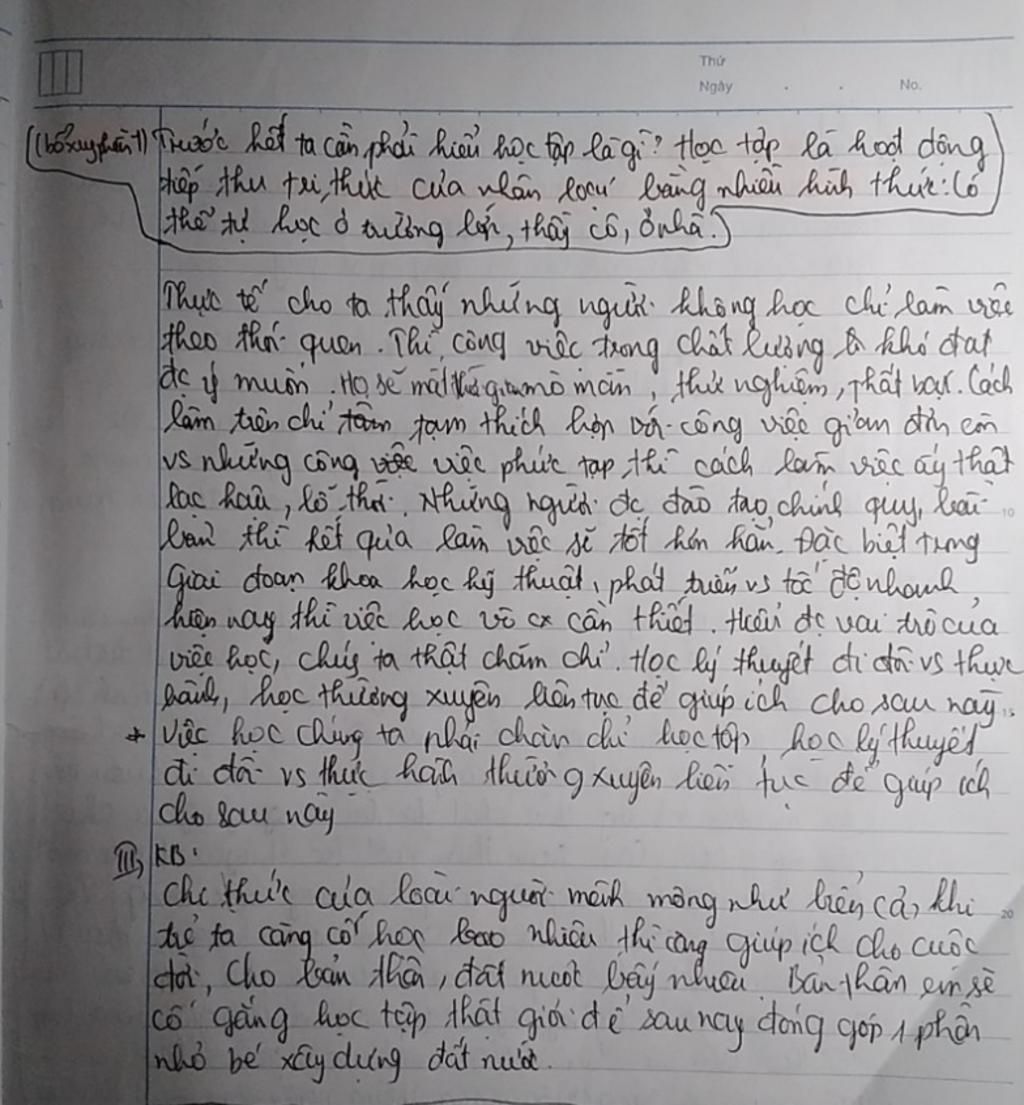 Thứ
Ngày . . No.
(bổ xug phần 1) Trước hết ta cần phải hiểu học tập là gì? Học tập là hoạt động
tiếp thu tri thức của nhân loại bằng nhiều hình thức: Có
thể tự học ở trường lớp, thầy cô, ở nhà.
Thực tế cho ta thấy những người không học chỉ làm việc
theo thói quen. Thì công việc trong chất lượng là khó đạt
đc ý muốn. Họ sẽ mất thời gian mò mẫn, thử nghiệm, thất bại. Cách
làm trên chỉ tạm thích hợp với công việc giản đơn còn
vs những công việc phức tạp thì cách làm việc ấy thật
lạc hậu, lỗi thời. Những người đc đào tạo chính quy, bài
bản thì kết quả làm việc sẽ tốt hơn hẳn. Đặc biệt trong
10
Giai đoạn khoa học kỹ thuật, phát triển vs tốc độ nhanh
hiện nay thì việc học vô cx cần thiết. Hiểu đc vai trò của
việc học, chúg ta thật chăm chỉ. Học lý thuyết đi đôi vs thực
hành, học thường xuyên liên tục để giúp ích cho sau này.
15
* Việc học chúng ta phải chăn chỉ học tập, học lý thuyết
đi đôi vs thực hành thường xuyên liên tục để giúp ích
cho sau này
III, KB:
Chi thức của loài người mênh mông như biển cả, khi
20
trẻ ta càng cố học bao nhiêu thì càng giúp ích cho cuộc
đời, cho bản thân, đất nước bấy nhiêu. Bản thân em sẽ
cố gắng học tập thật giỏi để sau này đóng góp 1 phần
nhỏ bé xây dựng đất nước.